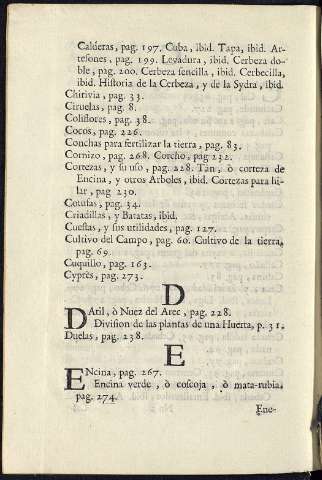 Calderas, pag. 197. Cuba, ibid. Tapa, ibid. Ar-
tesones, pag. 199. Levadura, ibid. Cerbeza do-
ble, pag. 200. Cerbeza sencilla, ibid. Cerbecilla,
ibid. Historia de la Cerbeza, y de la Sydra, ibid.
Chirivia, pag. 33.
Ciruelas, pag. 8.
Coliflores, pag. 38.
Cocos, pag. 226.
Conchas para fertilizar la tierra, pag. 83.
Cornizo, pag. 268. Corcho, pag 232.
Cortezas, y su uso, pag. 228. Tan, ò corteza de
Encina, y otros Arboles, ibid. Cortezas para hi-
lar, pag 230.
Cotufas, pag. 34.
Criadillas, y Batatas, ibid.
Cuestas, y sus utilidades, pag. 127.
Cultivo del Campo, pag. 60. Cultivo de la tierra,
pag. 69.
Cuquillo, pag. 163.
Cyprès, pag. 273.
D
DAtil, ò Nuez del Arec, pag. 228.
Division de las plantas de una Huerta, p. 31.
Duelas, pag. 238.
E
ENcina, pag. 267.
Encina verde, ò coscoja, ò mata-rubia,
pag. 274.
Ene-